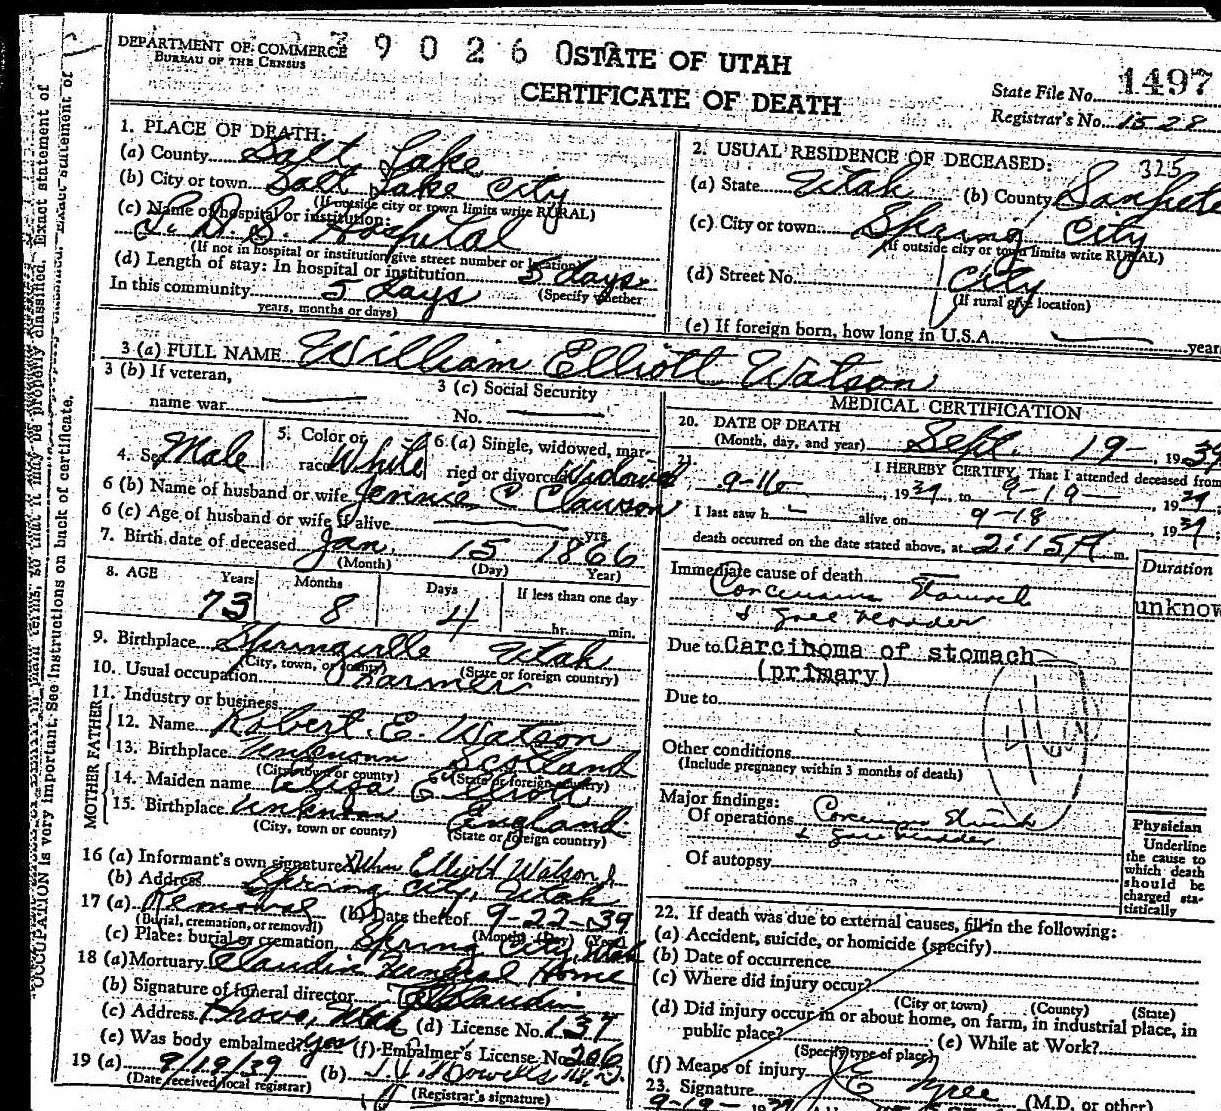 DEPARTMENT OF COMMERCE
BUREAU OF THE CENSUS
9 0 2 6 0
STATE OF UTAH
CERTIFICATE OF DEATH
State File No. 1497
Registrar's No. 1528
1. PLACE OF DEATH:
(a) County Salt Lake
(b) City or town Salt Lake City
(If outside city or town limits write RURAL)
(c) Name of hospital or institution:
L. D. S. Hospital
(If not in hospital or institution give street number or location)
(d) Length of stay: In hospital or institution 5 days
In this community 5 days (Specify whether
years, months or days)
2. USUAL RESIDENCE OF DECEASED:
325
(a) State Utah (b) County Sanpete
(c) City or town Spring City
(If outside city or town limits write RURAL)
(d) Street No. City
(If rural give location)
(e) If foreign born, how long in U.S.A. years
3 (a) FULL NAME William Elliott Watson
3 (b) If veteran,
name war
3 (c) Social Security
No.
4. Sex Male
5. Color or
race White
6 (a) Single, widowed, mar-
ried or divorced Widowed
6 (b) Name of husband or wife Jennie C Clawson
6 (c) Age of husband or wife if alive yrs.
7. Birth date of deceased Jan. 15 1866
(Month) (Day) Year)
8. AGE Years Months Days If less than one day
73 8 4 hr. min.
9. Birthplace Springville Utah
(City, town, or county) (State or foreign country)
10. Usual occupation Farmer
11. Industry or business
FATHER
12. Name Robert E. Watson
13. Birthplace Unknown Scotland
(City, town or county) (State or foreign country)
MOTHER
14. Maiden name Eliza Elliott
15. Birthplace Unknown England
(City, town or county) (State or foreign country)
16 (a) Informant's own signature X Wm Elliott Watson Jr
(b) Address Spring City, Utah
17 (a) Removal (b) Date thereof 9-22-39
(Burial, cremation, or removal) (Month) (Day) (Year)
(c) Place: burial or cremation Spring City, Utah
18 (a) Mortuary Claudin Funeral Home
(b) Signature of funeral director Claudin
(c) Address Provo, Utah (d) License No. 137
(e) Was body embalmed? yes (f) Embalmer's License No. 206
19 (a) 9/19/39 (b)
(Date received local registrar) (Registrar's signature)
MEDICAL CERTIFICATION
20. DATE OF DEATH
(Month, day, and year) Sept. 19-, 1939
21. I HEREBY CERTIFY, That I attended deceased from
9-16, 1939, to 9-19-, 1939;
I last saw h alive on 9-18 1939;
death occurred on the date stated above, at 2:15 A m.
Immediate cause of death
Duration
unknow
Due to Carcinoma of stomach
(primary)
Due to
Other conditions
(Include pregnancy within 3 months of death)
Major findings:
Of operations
Of autopsy
Physician
Underline
the cause to
which death
should be
charged sta-
tistically
22. If death was due to external causes, fill in the following:
(a) Accident, suicide, or homicide (specify)
(b) Date of occurrence
(c) Where did injury occur?
(City or town) (County) (State)
(d) Did injury occur in or about home, on farm, in industrial place, in
public place? (e) While at Work?
(Specify type of place)
(f) Means of injury
23. Signature (M.D. or other)
9-19-
OCCUPATION is very important. See instructions on back of certificate.